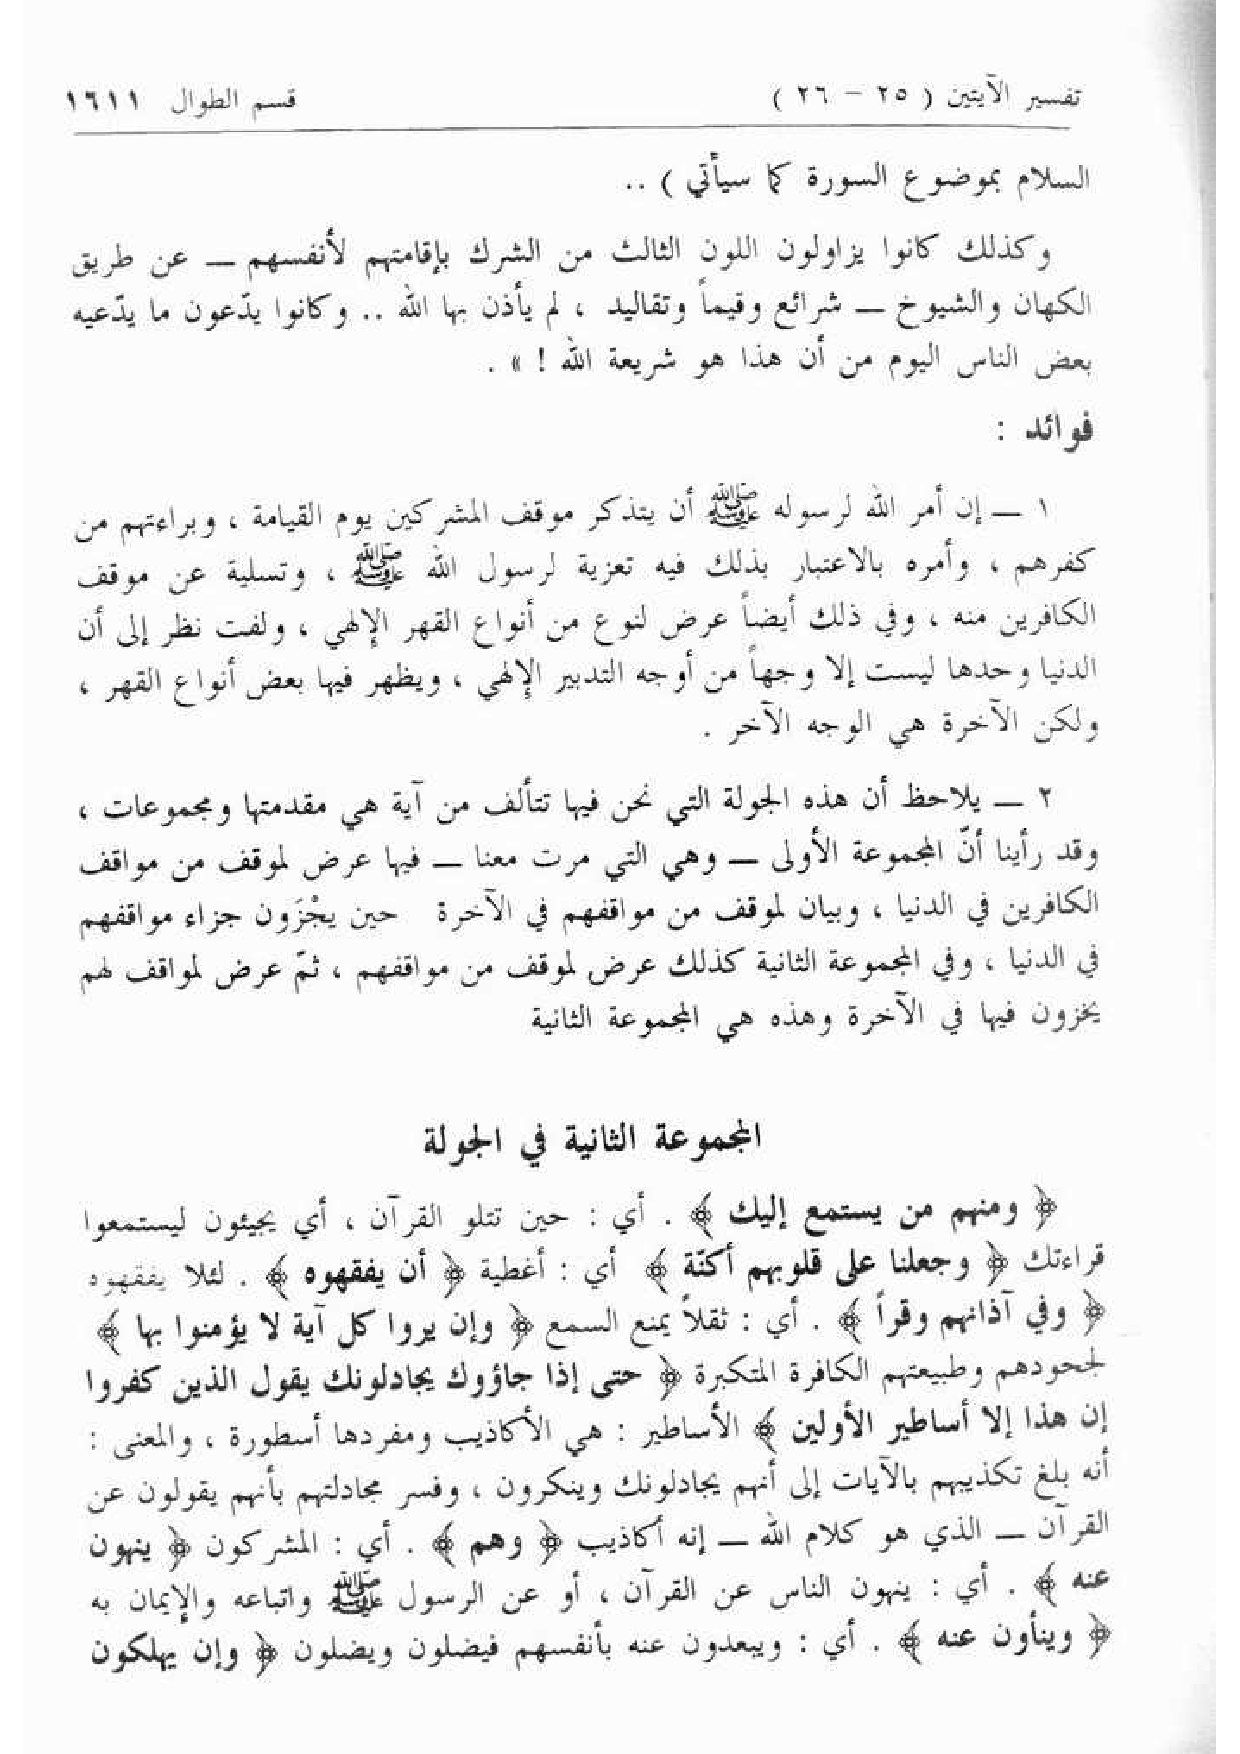 تفسير الآيتين ( ٢٥ – ٢٦ ) قسم الطوال ١٦١١
السلام بموضوع السورة كما سيأتي ) ..
وكذلك كانوا يزاولون اللون الثالث من الشرك بإقامتهم لأنفسهم — عن طريق
الكهان والشيوخ — شرائع وقيماً وتقاليد ، لم يأذن بها الله .. وكانوا يدّعون ما يدّعيه
بعض الناس اليوم من أن هذا هو شريعة الله ! » .
فوائد :
١ — إن أمر الله لرسوله ﷺ أن يتذكر موقف المشركين يوم القيامة ، وبراءتهم من
كفرهم ، وأمره بالاعتبار بذلك فيه تعزية لرسول الله ﷺ ، وتسلية عن موقف
الكافرين منه ، وفي ذلك أيضاً عرض لنوع من أنواع القهر الإلهي ، ولفت نظر إلى أن
الدنيا وحدها ليست إلا وجهاً من أوجه التدبير الإلهي ، ويظهر فيها بعض أنواع القهر ،
ولكن الآخرة هي الوجه الآخر .
٢ — يلاحظ أن هذه الجولة التي نحن فيها تتألف من آية هي مقدمتها ومجموعات ،
وقد رأينا أنّ المجموعة الأولى — وهي التي مرت معنا — فيها عرض لموقف من مواقف
الكافرين في الدنيا ، وبيان لموقف من مواقفهم في الآخرة حين يجْزَون جزاء مواقفهم
في الدنيا ، وفي المجموعة الثانية كذلك عرض لموقف من مواقفهم ، ثمّ عرض لمواقف لهم
يخزون فيها في الآخرة وهذه هي المجموعة الثانية
المجموعة الثانية في الجولة
﴿ ومنهم من يستمع إليك ﴾ . أي : حين تتلو القرآن ، أي يجيئون ليستمعوا
قراءتك ﴿ وجعلنا على قلوبهم أكنّة ﴾ أي : أغطية ﴿ أن يفقهوه ﴾ . لئلا يفقهوه
﴿ وفي آذانهم وقراً ﴾ . أي : ثقلاً يمنع السمع ﴿ وإن يروا كل آية لا يؤمنوا بها ﴾
لجحودهم وطبيعتهم الكافرة المتكبرة ﴿ حتى إذا جاؤوك يجادلونك يقول الذين كفروا
إن هذا إلا أساطير الأولين ﴾ الأساطير : هي الأكاذيب ومفردها أسطورة ، والمعنى :
أنه بلغ تكذيبهم بالآيات إلى أنهم يجادلونك وينكرون ، وفسر مجادلتهم بأنهم يقولون عن
القرآن — الذي هو كلام الله — إنه أكاذيب ﴿ وهم ﴾ . أي : المشركون ﴿ ينهون
عنه ﴾ . أي : ينهون الناس عن القرآن ، أو عن الرسول ﷺ واتباعه والإيمان به
﴿ وينأون عنه ﴾ . أي : ويبعدون عنه بأنفسهم فيضلون ويضلون ﴿ وإن يهلكون